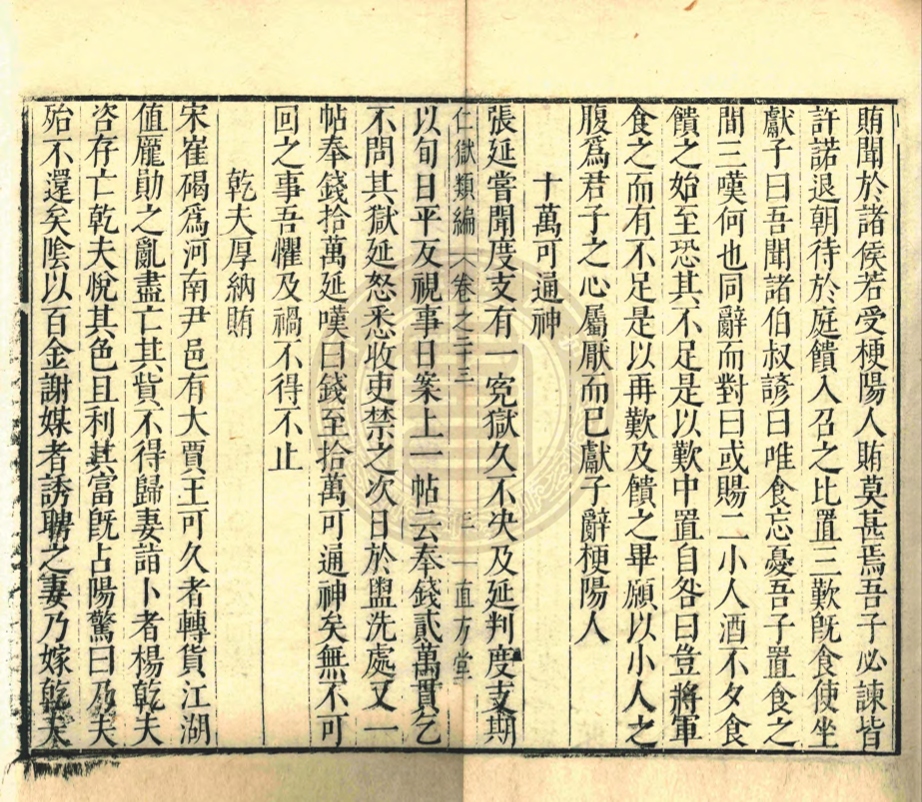 賄聞於諸侯若受梗陽人賄莫甚焉吾子必諫皆
許諾退朝待於庭饋入召之比置三歎旣食使坐
獻子曰吾聞諸伯叔諺曰唯食忘憂吾子置食之
間三嘆何也同辭而對曰或賜二小人酒不夕食
饋之始至恐其不足是以歎中置自咎曰豈將軍
食之而有不足是以再歎及饋之畢願以小人之
腹爲君子之心屬厭而已獻子辭梗陽人
十萬可通神
張延嘗聞度支有一寃獄久不决及延判度支期
仁獄類編 卷之二十三 三 直方堂
以旬日平反視事日案上一帖云奉錢貳萬貫乞
不問其獄延怒悉收吏禁之次日於盥洗處又一
帖奉錢拾萬延嘆曰錢至拾萬可通神矣無不可
回之事吾懼及禍不得不止
乾夫厚納賄
宋崔碣爲河南尹邑有大賈王可久者轉貨江湖
值龐勛之亂盡亡其貲不得歸妻詣卜者楊乾夫
咨存亡乾夫悅其色且利其富旣占陽驚曰乃夫
殆不還矣陰以百金謝媒者誘聘之妻乃嫁乾夫